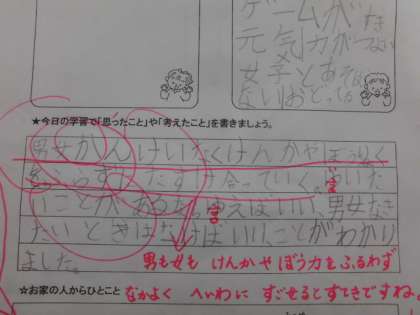 ゲームがすき
元気力がつよい
女子とあそば
ない
★今日の学習で「思ったこと」や「考えたこと」を書きましょう。
男女かんけいなくけんかやぼう力
をふらず たすけ合っていく。いいた
いことがあるなら言えばいい、男女なき
たいときはなけばいいことがわかり
ました。
男も女も けんかやぼう力をふるわず
★お家の人からひとこと なかよく へいわに すごせるとすてきですね。